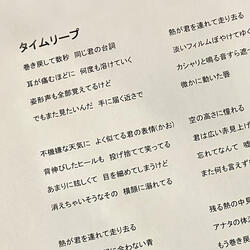 タイムリープ
巻き戻して数秒 同じ君の台詞
耳が痛むほどに 何度も溶けていく
姿形声も全部覚えてるけど
でもまた見たいんだ 手に届く近さで
不機嫌な天気に よく似てる君の表情(かお)
背伸びしたヒールも 投げ捨てて笑ってる
あまりに眩しくて 目を細めてしまうけど
消えちゃいそうなその 横顔に溺れてる
熱が君を連れて走り去る
に合わない青
熱が君を連れて走り去る
淡いフィルムぼやけてゆく
カシャりと鳴る音すら遮っ
微かに動いた唇
空の高さに憧れる
君は広い青見上げ
忘れてなんて 嘘
また何も言えず
残る熱の中見
アナタの体温
もう巻き戻